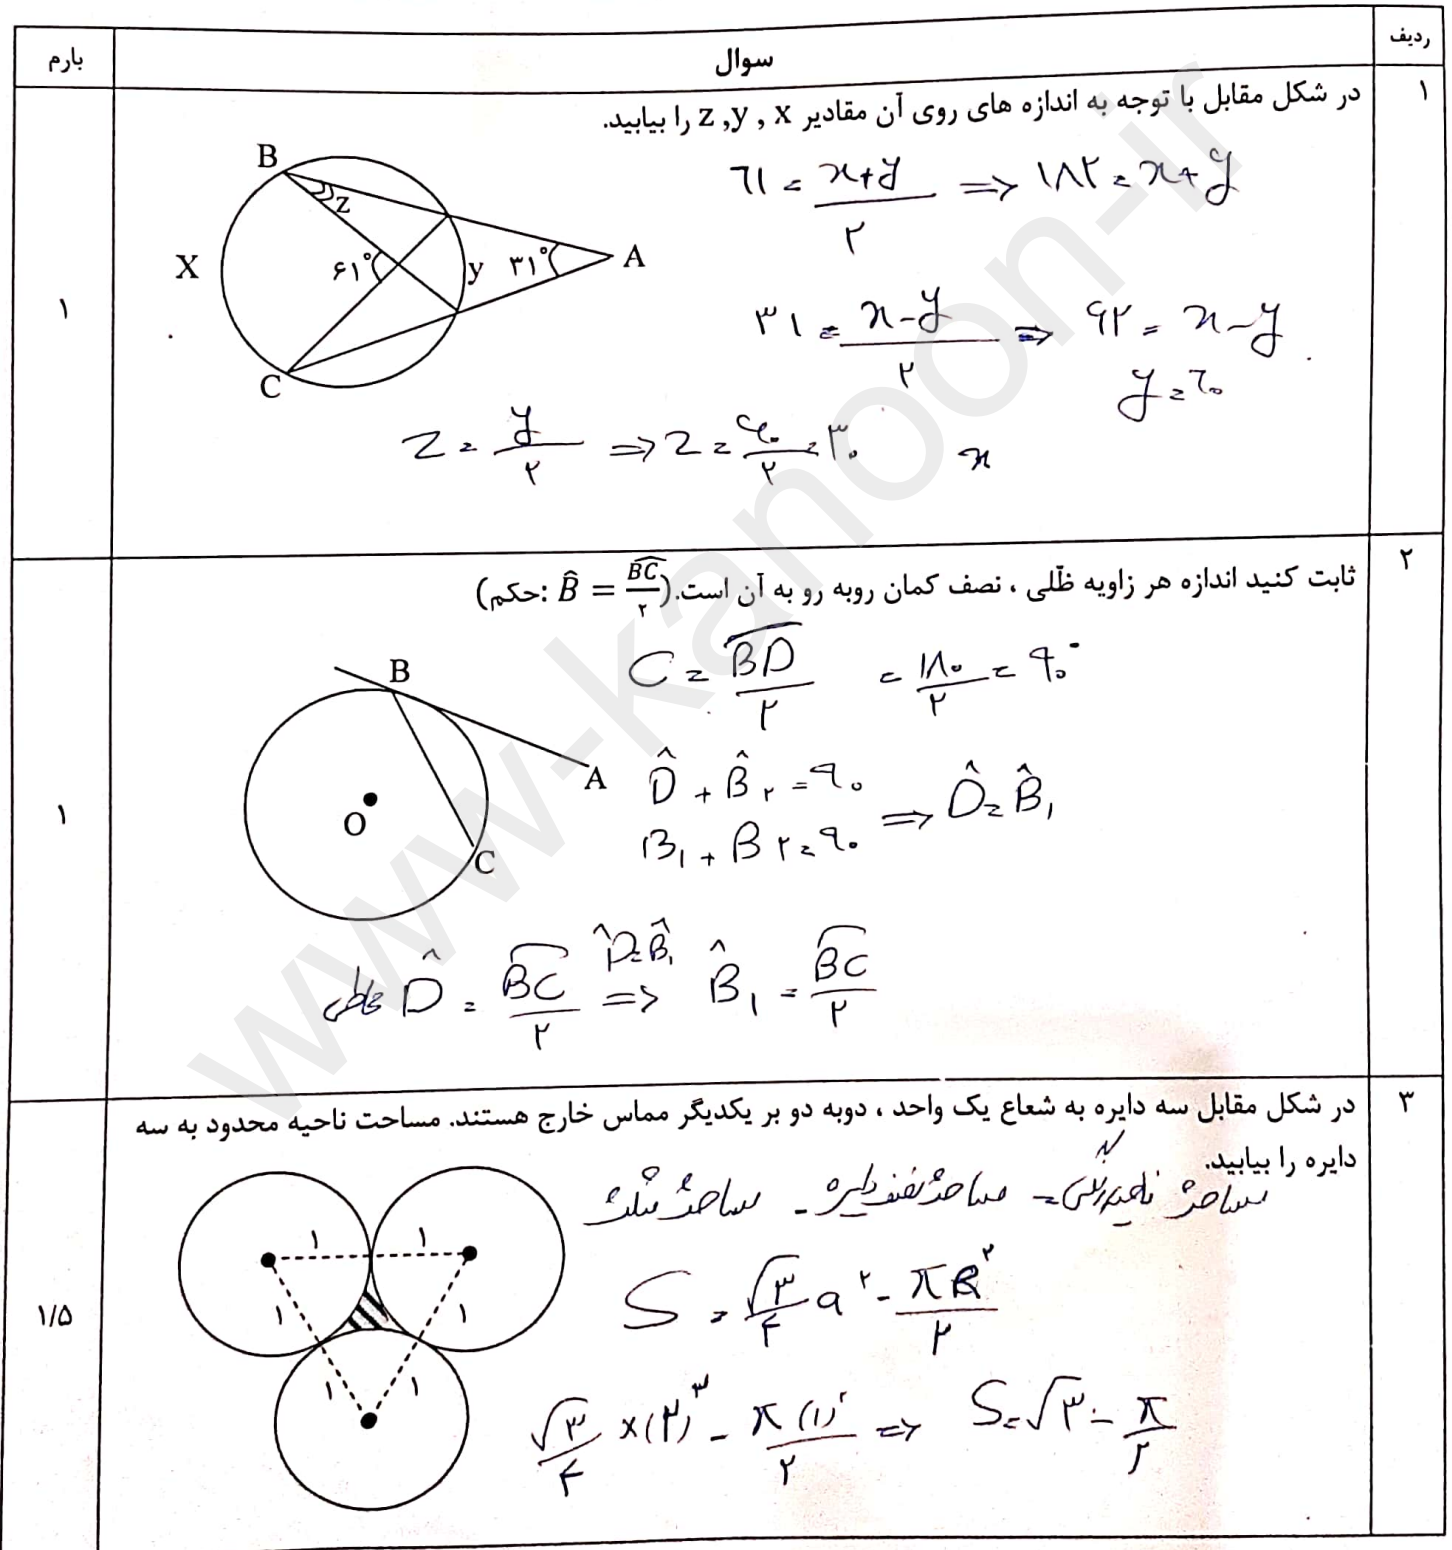 ردیف
سوال
بارم
۱
در شکل مقابل با توجه به اندازه های روی آن مقادیر z ,y , x را بیابید.
B
z
X
۶۱°
y
۳۱°
A
C
۶۱ = x+y / ۲ ⇒ ۱۸۲ = x+y
۳۱ = x-y / ۲ ⇒ ۶۲ = x-y
y = ۶۰
z = y / ۲ ⇒ z = ۶۰ / ۲ = ۳۰
x
۱
۲
ثابت کنید اندازه هر زاویه ظلّی ، نصف کمان روبه رو به آن است.(حکم: B̂ = BC / ۲)
B
A
O
C
C = BD / ۲ = ۱۸۰ / ۲ = ۹۰°
D̂ + B̂۲ = ۹۰
B۱ + B۲ = ۹۰ ⇒ D̂ = B̂۱
محاطی D̂ = BC / ۲ D̂=B̂۱ ⇒ B̂۱ = BC / ۲
۱
۳
در شکل مقابل سه دایره به شعاع یک واحد ، دوبه دو بر یکدیگر مماس خارج هستند. مساحت ناحیه محدود به سه
دایره را بیابید.
مساحت مثلث - مساحت نصف دایره = مساحت
۱ ۱
۱ ۱
۱ ۱
S = √۳ / ۴ a۲ - πR۲ / ۲
√۳ / ۴ × (۲)۳ - π(۱)۲ / ۲ ⇒ S = √۳ - π / ۲
۱/۵
www-kanoon-ir